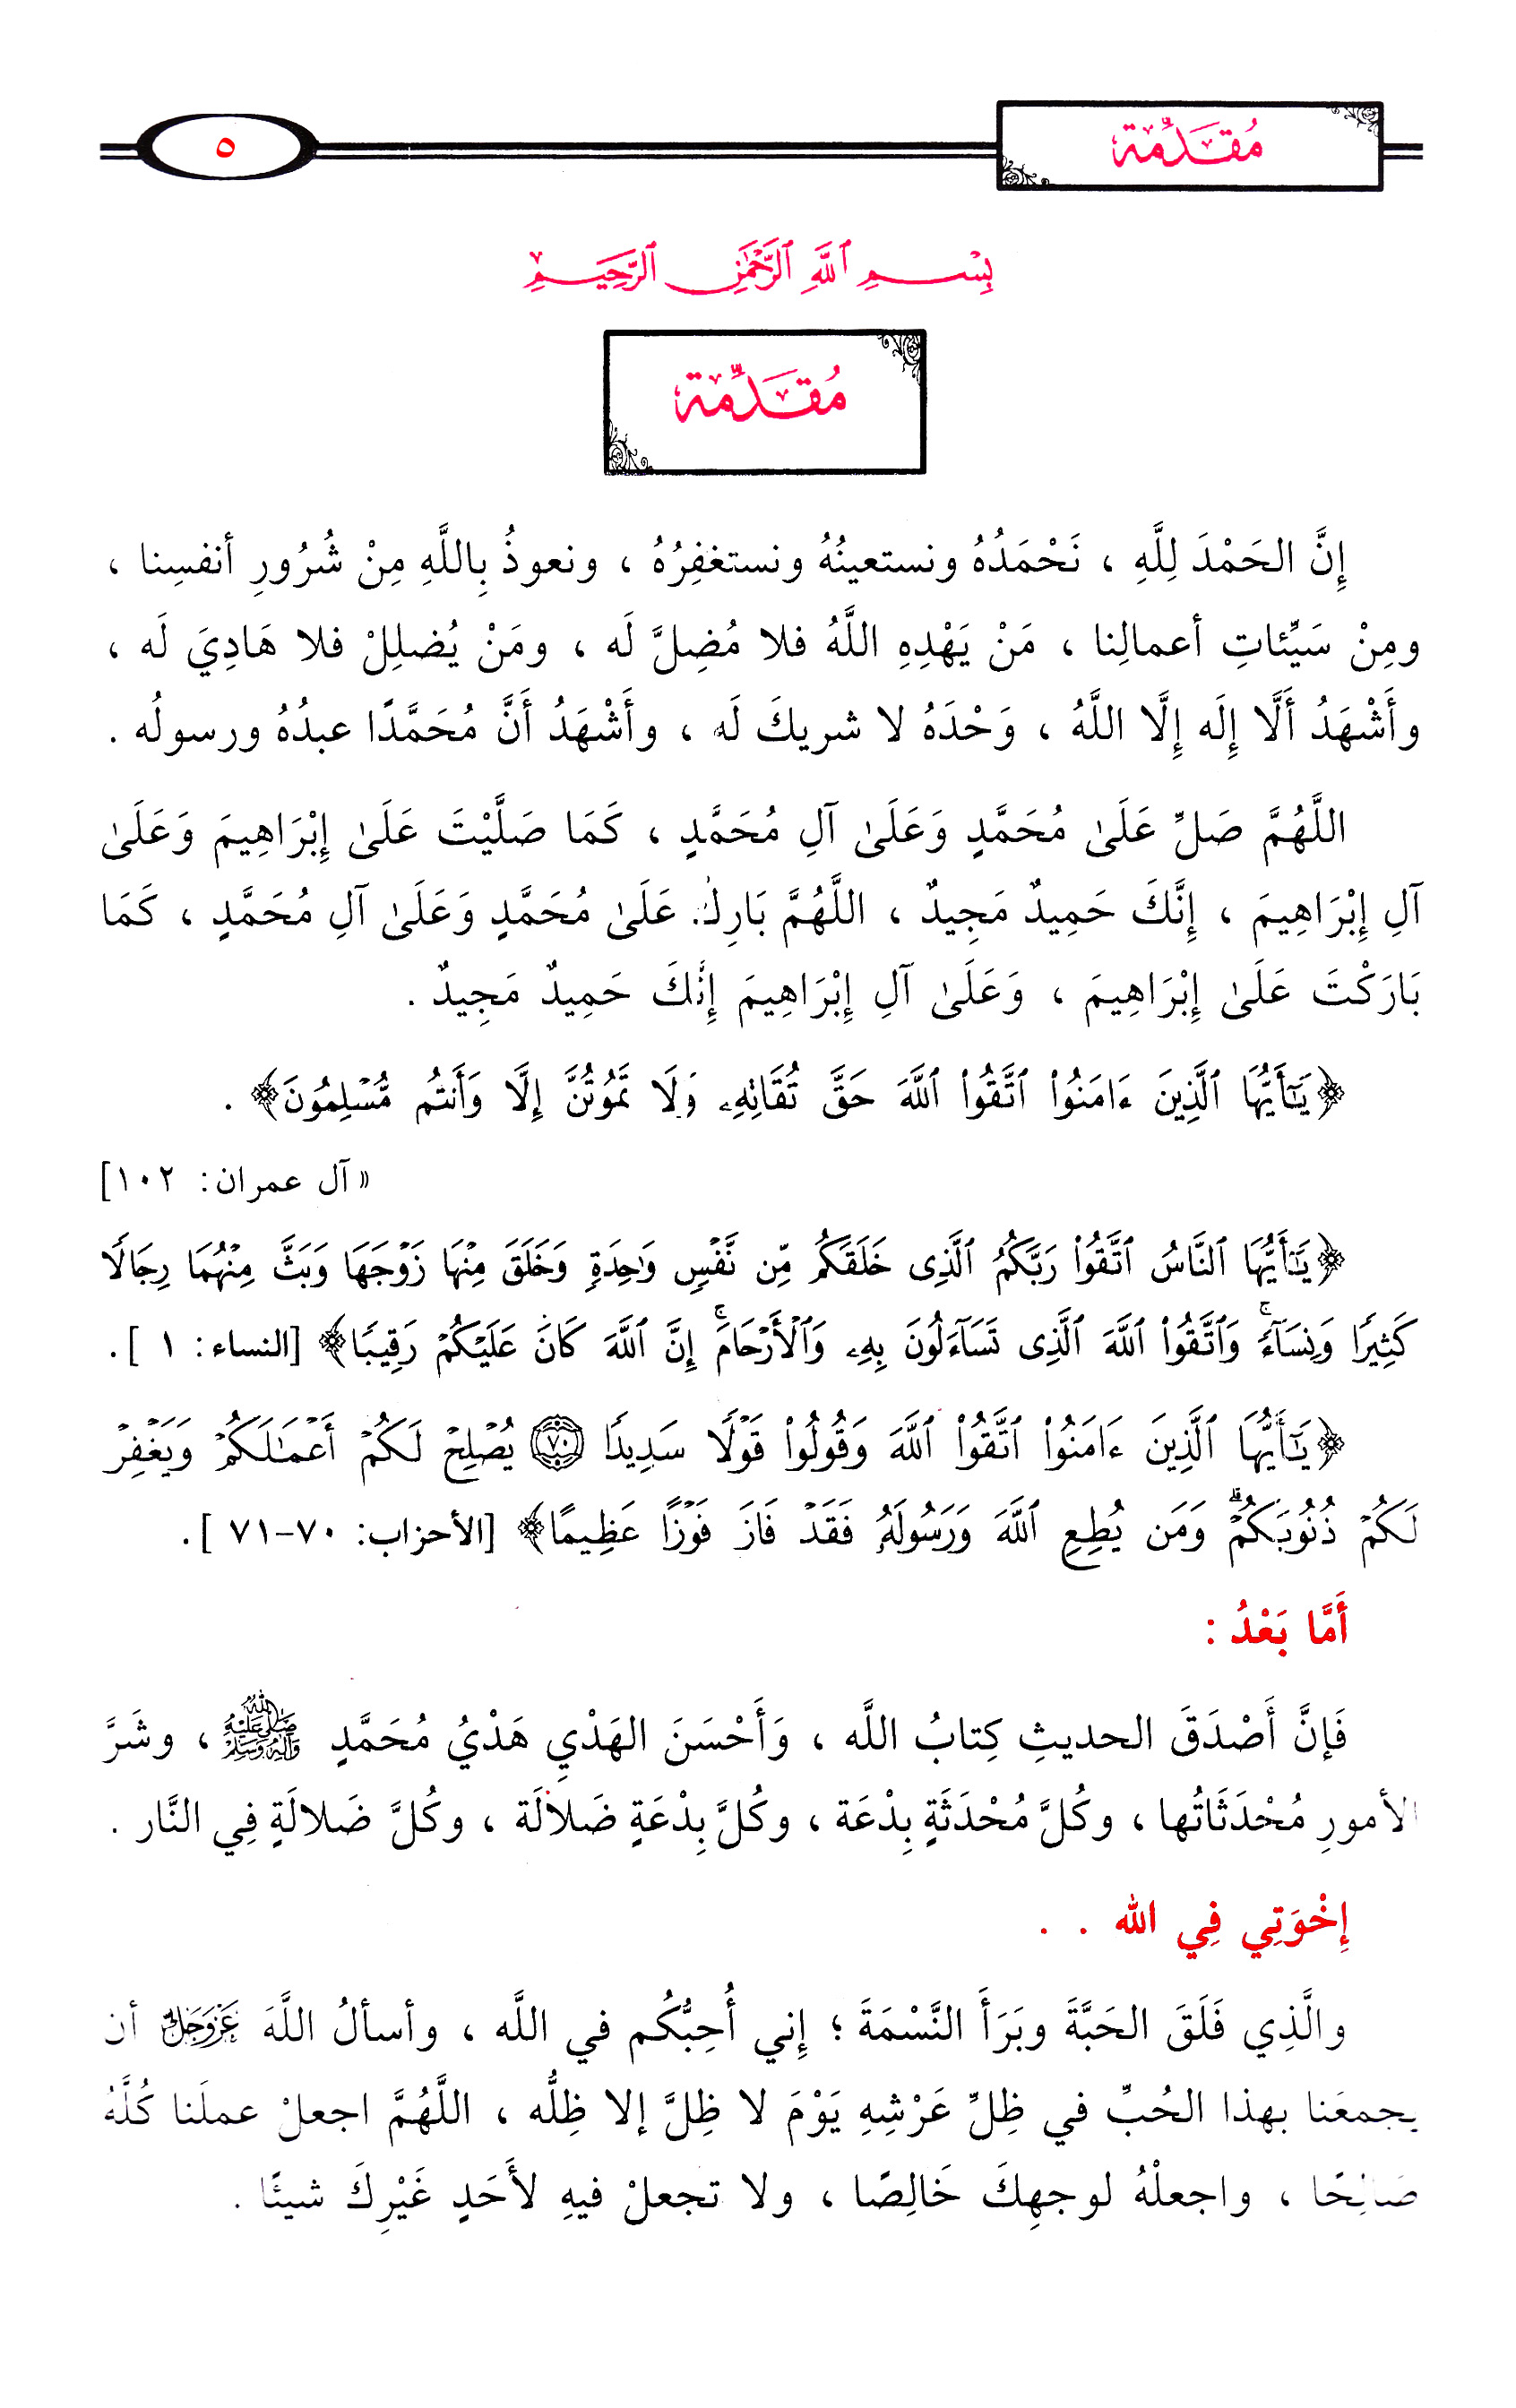 مُقَدِّمَة
٥
بِسْمِ ٱللَّهِ ٱلرَّحْمَٰنِ ٱلرَّحِيمِ
مُقَدِّمَة
إِنَّ الحَمْدَ لِلَّهِ ، نَحْمَدُهُ ونستعينُهُ ونستغفِرُهُ ، ونعوذُ بِاللَّهِ مِنْ شُرُورِ أنفسِنا ،
ومِنْ سَيِّئاتِ أعمالِنا ، مَنْ يَهْدِهِ اللَّهُ فلا مُضِلَّ لَه ، ومَنْ يُضلِلْ فلا هَادِيَ لَه ،
وأَشْهَدُ أَلَّا إِلَه إِلَّا اللَّهُ ، وَحْدَهُ لا شريكَ لَه ، وأَشْهَدُ أَنَّ مُحَمَّدًا عبدُهُ ورسولُه .
اللَّهُمَّ صَلِّ عَلَىٰ مُحَمَّدٍ وَعَلَىٰ آلِ مُحَمَّدٍ ، كَمَا صَلَّيْتَ عَلَىٰ إِبْرَاهِيمَ وَعَلَىٰ
آلِ إِبْرَاهِيمَ ، إِنَّكَ حَمِيدٌ مَجِيدٌ ، اللَّهُمَّ بَارِكْ عَلَىٰ مُحَمَّدٍ وَعَلَىٰ آلِ مُحَمَّدٍ ، كَمَا
بَارَكْتَ عَلَىٰ إِبْرَاهِيمَ ، وَعَلَىٰ آلِ إِبْرَاهِيمَ إِنَّكَ حَمِيدٌ مَجِيدٌ .
﴿يَٰٓأَيُّهَا ٱلَّذِينَ ءَامَنُوا۟ ٱتَّقُوا۟ ٱللَّهَ حَقَّ تُقَاتِهِۦ وَلَا تَمُوتُنَّ إِلَّا وَأَنتُم مُّسْلِمُونَ﴾ .
« آل عمران: ١٠٢]
﴿يَٰٓأَيُّهَا ٱلنَّاسُ ٱتَّقُوا۟ رَبَّكُمُ ٱلَّذِى خَلَقَكُم مِّن نَّفْسٍ وَٰحِدَةٍ وَخَلَقَ مِنْهَا زَوْجَهَا وَبَثَّ مِنْهُمَا رِجَالًا
كَثِيرًا وَنِسَآءً ۚ وَٱتَّقُوا۟ ٱللَّهَ ٱلَّذِى تَسَآءَلُونَ بِهِۦ وَٱلْأَرْحَامَ ۚ إِنَّ ٱللَّهَ كَانَ عَلَيْكُمْ رَقِيبًا﴾ [النساء: ١ ] .
﴿يَٰٓأَيُّهَا ٱلَّذِينَ ءَامَنُوا۟ ٱتَّقُوا۟ ٱللَّهَ وَقُولُوا۟ قَوْلًا سَدِيدًا ۝٧٠ يُصْلِحْ لَكُمْ أَعْمَٰلَكُمْ وَيَغْفِرْ
لَكُمْ ذُنُوبَكُمْ ۗ وَمَن يُطِعِ ٱللَّهَ وَرَسُولَهُۥ فَقَدْ فَازَ فَوْزًا عَظِيمًا﴾ [الأحزاب: ٧٠-٧١ ] .
أَمَّا بَعْدُ :
فَإنَّ أَصْدَقَ الحديثِ كِتابُ اللَّه ، وَأَحْسَنَ الهَدْيِ هَدْيُ مُحَمَّدٍ ﷺ ، وشَرَّ
الأمورِ مُحْدَثَاتُها ، وكُلَّ مُحْدَثَةٍ بِدْعَة ، وكُلَّ بِدْعَةٍ ضَلالَة ، وكُلَّ ضَلالَةٍ فِي النَّار .
إِخْوَتِي فِي الله . .
والَّذِي فَلَقَ الحَبَّةَ وبَرَأَ النَّسْمَةَ ؛ إِني أُحِبُّكُم في اللَّه ، وأسألُ اللَّهَ عَزَّوَجَلَّ أن
يجمعَنا بهذا الحُبِّ في ظِلِّ عَرْشِهِ يَوْمَ لا ظِلَّ إلا ظِلُّه ، اللَّهُمَّ اجعلْ عملَنا كُلَّهُ
صَالِحًا ، واجعلْهُ لوجهِكَ خَالِصًا ، ولا تجعلْ فيهِ لأَحَدٍ غَيْرِكَ شيئًا .